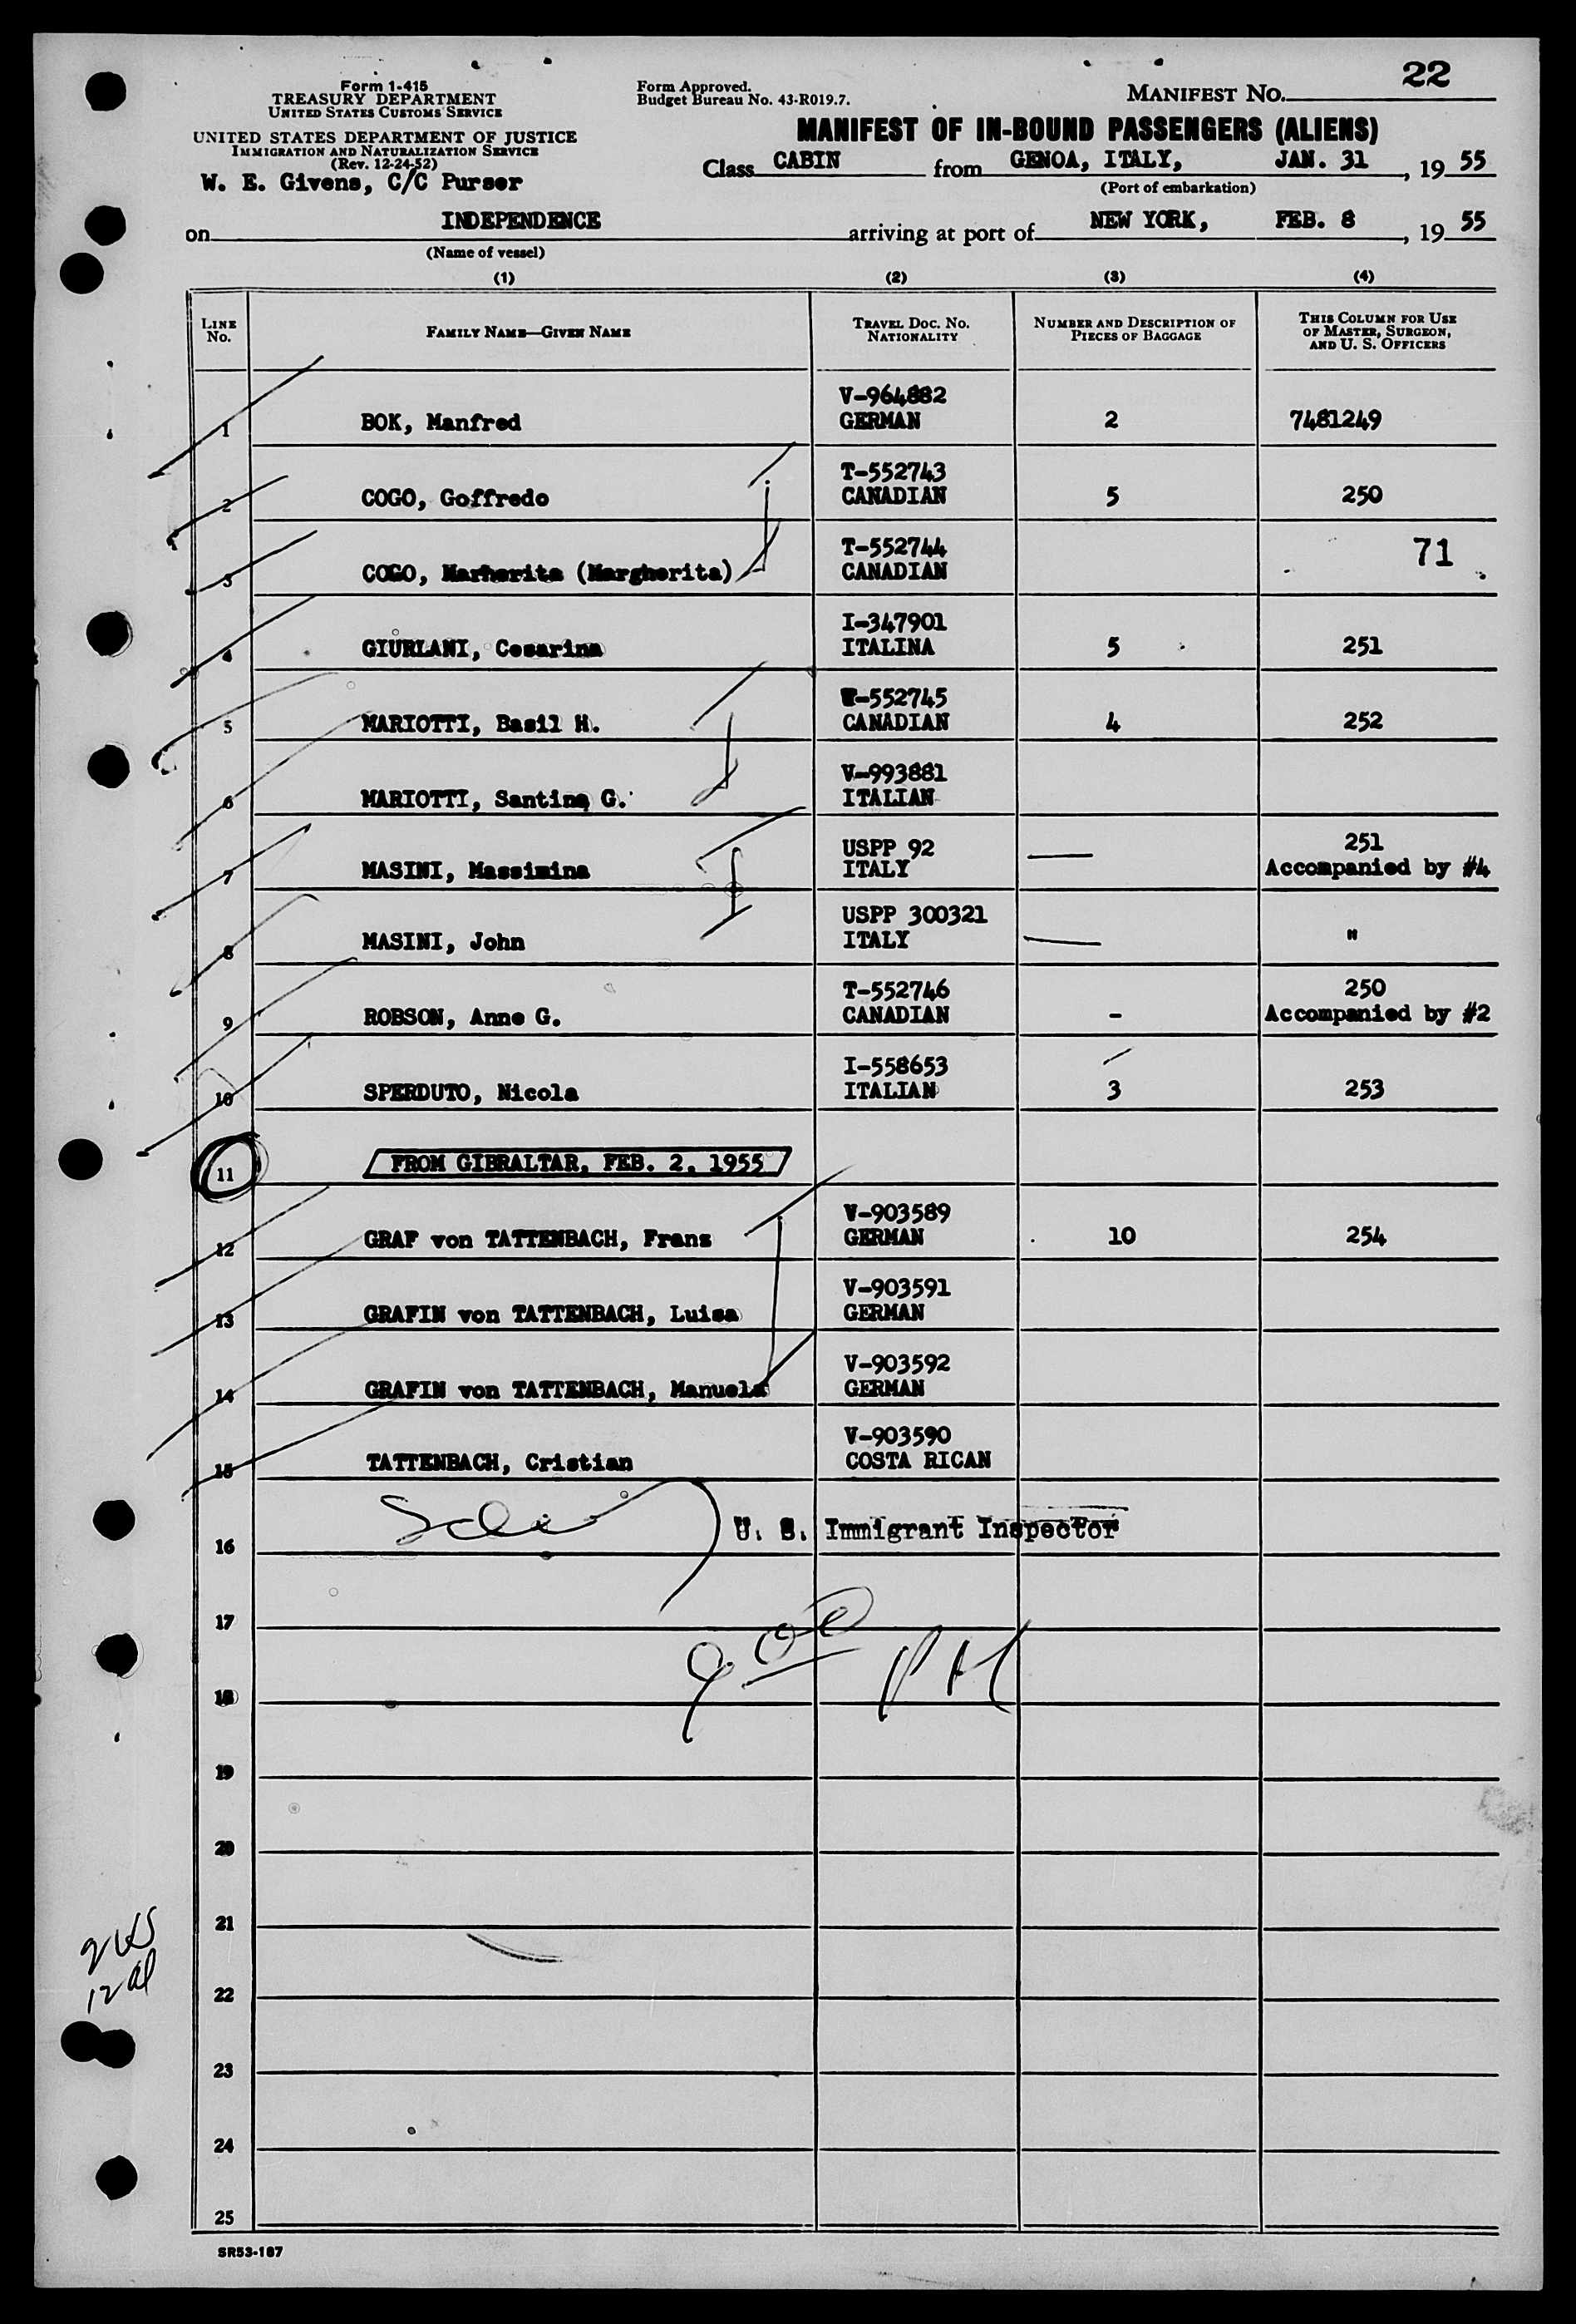 Form I-415
TREASURY DEPARTMENT
UNITED STATES CUSTOMS SERVICE
UNITED STATES DEPARTMENT OF JUSTICE
IMMIGRATION AND NATURALIZATION SERVICE
(Rev. 12-24-52)
W. E. Givens, C/C Purser
Form Approved.
Budget Bureau No. 43-R019.7.
MANIFEST NO. 22
MANIFEST OF IN-BOUND PASSENGERS (ALIENS)
Class CABIN from GENOA, ITALY, JAN. 31, 19 55
(Port of embarkation)
on INDEPENDENCE arriving at port of NEW YORK, FEB. 8, 19 55
(Name of vessel)
(1) (2) (3) (4)
LINE NO. FAMILY NAME—GIVEN NAME TRAVEL DOC. NO. NATIONALITY NUMBER AND DESCRIPTION OF PIECES OF BAGGAGE THIS COLUMN FOR USE OF MASTER, SURGEON, AND U. S. OFFICERS
V-964882
1 BOK, Manfred GERMAN 2 7481249
T-552743
2 COGO, Goffredo CANADIAN 5 250
T-552744 71
3 COGO, Marherita (Margherita) CANADIAN
I-347901
4 GIURLANI, Cesarina ITALINA 5 251
T-552745
5 MARIOTTI, Basil H. CANADIAN 4 252
V-993881
6 MARIOTTI, Santina G. ITALIAN
USPP 92 251
7 MASINI, Massimina ITALY — Accompanied by #4
USPP 300321
8 MASINI, John ITALY — "
T-552746 250
9 ROBSON, Anne G. CANADIAN - Accompanied by #2
I-558653
10 SPERDUTO, Nicola ITALIAN 3 253
11 FROM GIBRALTAR, FEB. 2, 1955
V-903589
12 GRAF von TATTENBACH, Franz GERMAN 10 254
V-903591
13 GRAFIN von TATTENBACH, Luisa GERMAN
V-903592
14 GRAFIN von TATTENBACH, Manuela GERMAN
V-903590
15 TATTENBACH, Cristian COSTA RICAN
16 U. S. Immigrant Inspector
17
18
19
20
21
22
23
24
25
SR53-187